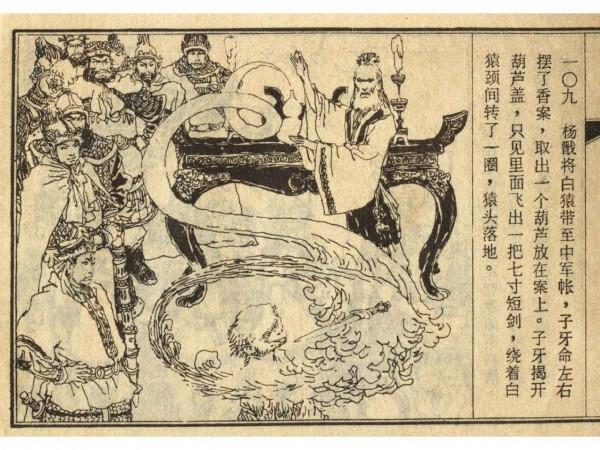 一〇九　杨戬将白猿带至中军帐，子牙命左右
摆了香案，取出一个葫芦放在案上。子牙揭开
葫芦盖，只见里面飞出一把七寸短剑，绕着白
猿颈间转了一圈，猿头落地。